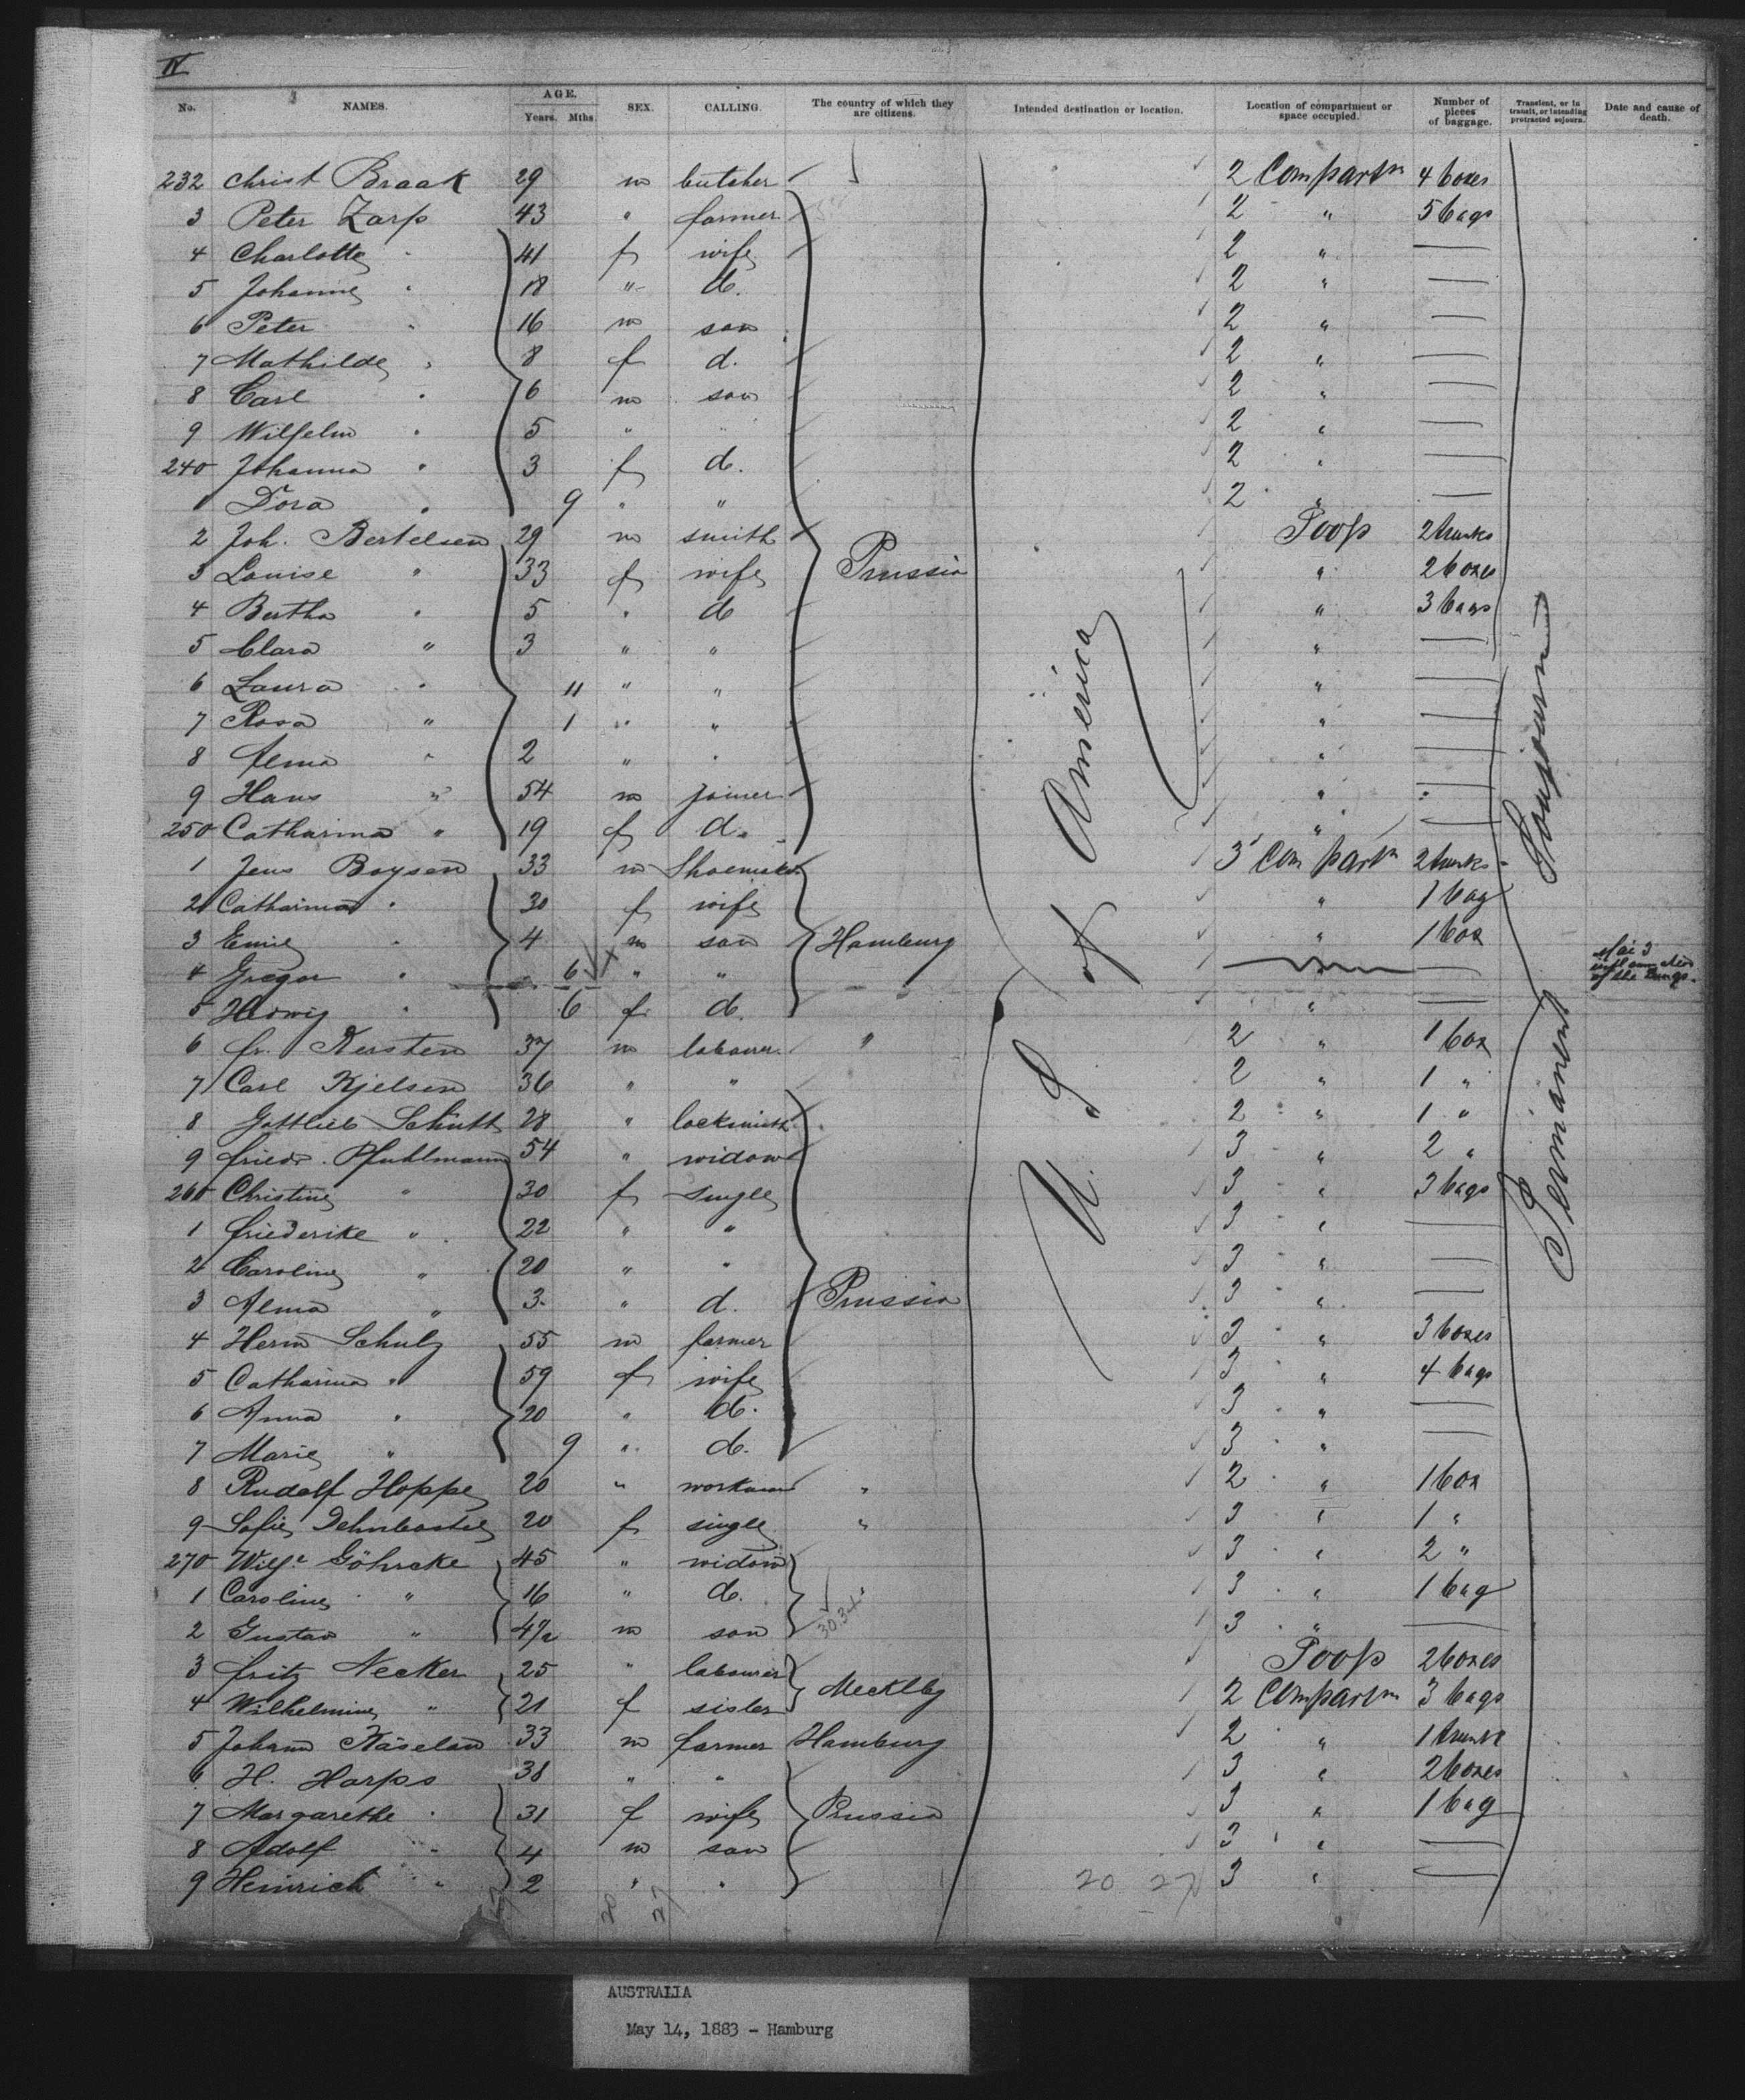 IV
No. NAMES. AGE. Years. Mths. SEX. CALLING. The country of which they are citizens. Intended destination or location. Location of compartment or space occupied. Number of pieces of baggage. Transient, or in transit, or intending protracted sejourn. Date and cause of death.
232 Christ Braak 29 m butcher 2 Compartm 4 boxes
3 Peter Zarp 43 " farmer 2 " 5 bags
4 Charlotte " 41 f wife 2 " —
5 Johanne " 18 " d. 2 " —
6 Peter " 16 m son 2 " —
7 Mathilde " 8 f d. 2 " —
8 Carl " 6 m son 2 " —
9 Wilhelm " 5 " " 2 " —
240 Johanna " 3 f d. 2 " —
1 Dora " 9 " " 2 " —
2 Joh. Bertelsen 29 m smith Poop 2 trunks
3 Louise " 33 f wife Prussia " 2 boxes
4 Bertha " 5 " d " 3 bags
5 Clara " 3 " " " —
6 Laura " 11 " " " —
7 Rosa " 1 " " " —
8 Alma " 2 " " " —
9 Hans " 54 m joiner " —
250 Catharina " 19 f d. " —
1 Jens Boysen 33 m Shoemaker 3 Compartm 2 trunks
2 Catharina " 30 f wife " 1 bag
3 Emil " 4 m son Hamburg " 1 box
4 Gregor " 6 " " " — Mai 3 inflammation of the Lungs.
5 Hedwig " 6 f d. " —
6 fr. Kersten 37 m labourer " 2 " 1 box
7 Carl Kjelsen 36 " " 2 " 1 "
8 Gottlieb Schütt 28 " locksmith 2 " 1 "
9 friedr. Pfuhlmann 54 " widow 3 " 2 "
260 Christine " 30 f single 3 " 3 bags
1 friederike " 22 " " 3 " —
2 Caroline " 20 " " 3 " —
3 Alma " 3 " d. Prussia 3 " —
4 Herm Schulz 55 m farmer 3 " 3 boxes
5 Catharina " 59 f wife 3 " 4 bags
6 Anna " 20 " d. 3 " —
7 Marie " 9 " d. 3 " —
8 Rudolf Hoppe 20 " workman " 2 " 1 box
9 Sofie 20 f single " 3 " 1 "
270 Göhrcke 45 " widow 3 " 2 "
1 Caroline " 16 " d. 3 " 1 bag
2 Gustav " 4½ m son 3 " —
3 fritz Necker 25 " labourer Poop 2 boxes
4 Wilhelmine " 21 f sister Mecklbg 2 Compartm 3 bags
5 Johann Käselau 33 m farmer Hamburg 2 " 1 trunk
6 H. Harps 38 " " 3 " 2 boxes
7 Margarethe " 31 f wife Prussia 3 " 1 bag
8 Adolf " 4 m son 3 " —
9 Heinrich " 2 " " 3 " —
U. S. of America
Permanent Soujourn
20 27
20 27
AUSTRALIA
May 14, 1883 - Hamburg